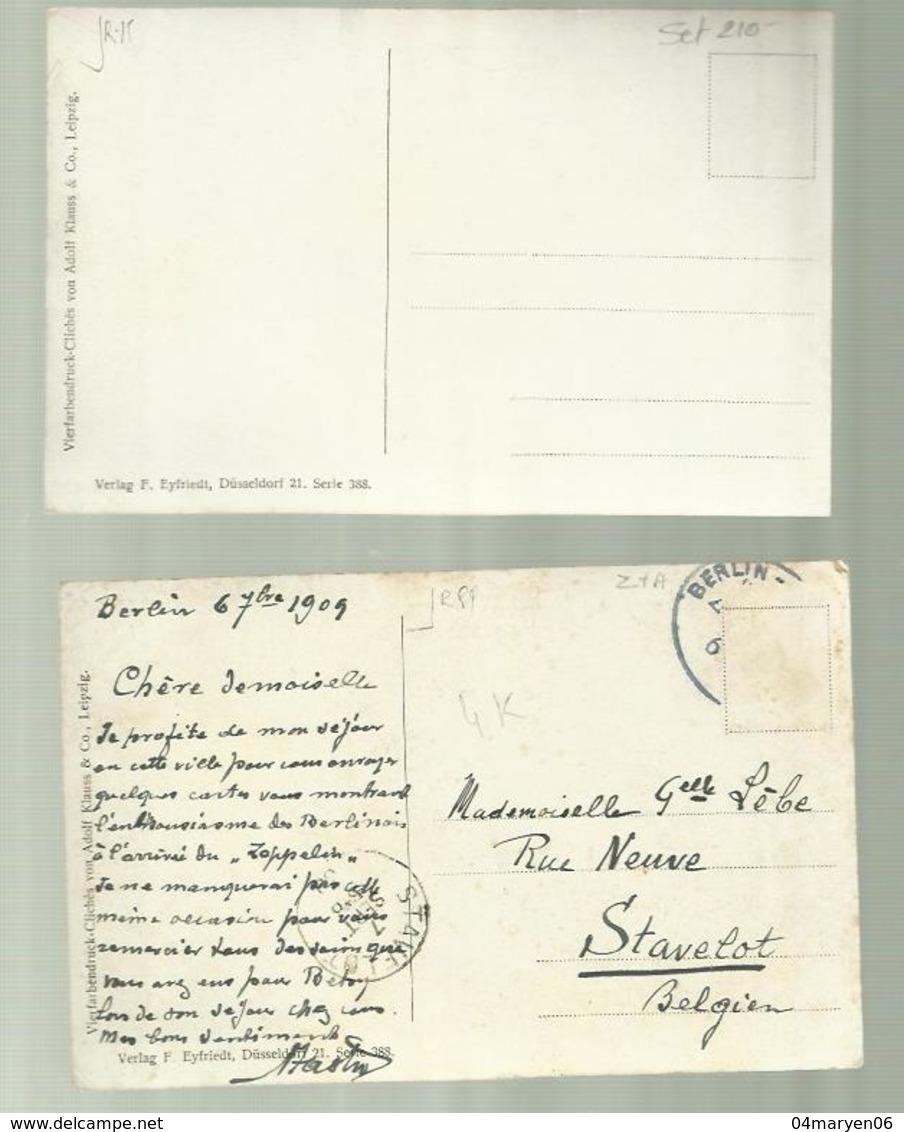 R-15
Set 210-
Vierfarbendruck-Clichés von Adolf Klauss & Co., Leipzig.
Verlag F. Eyfriedt, Düsseldorf 21. Serie 388.
Berlin 6 7bre 1909
R 99
Z+A
BERLIN
4 K
Chère demoiselle
Je profite de mon séjour
en cette ville pour vous envoyer
quelques cartes vous montrant
l'enthousiasme des Berlinois
à l'arrivée du „Zeppelin"
Je ne manquerai pas cette
même occasion pour vous
remercier tous des soins que
vous avez eus pour
lors de son séjour chez vous.
Mes bons sentiments
Vierfarbendruck-Clichés von Adolf Klauss & Co., Leipzig.
Verlag F. Eyfriedt, Düsseldorf 21. Serie 388.
Mademoiselle Gelle Lêbe
Rue Neuve
Stavelot
Belgien
STAVELOT
7
SEPT
http://www.delcampe.net
04maryen06